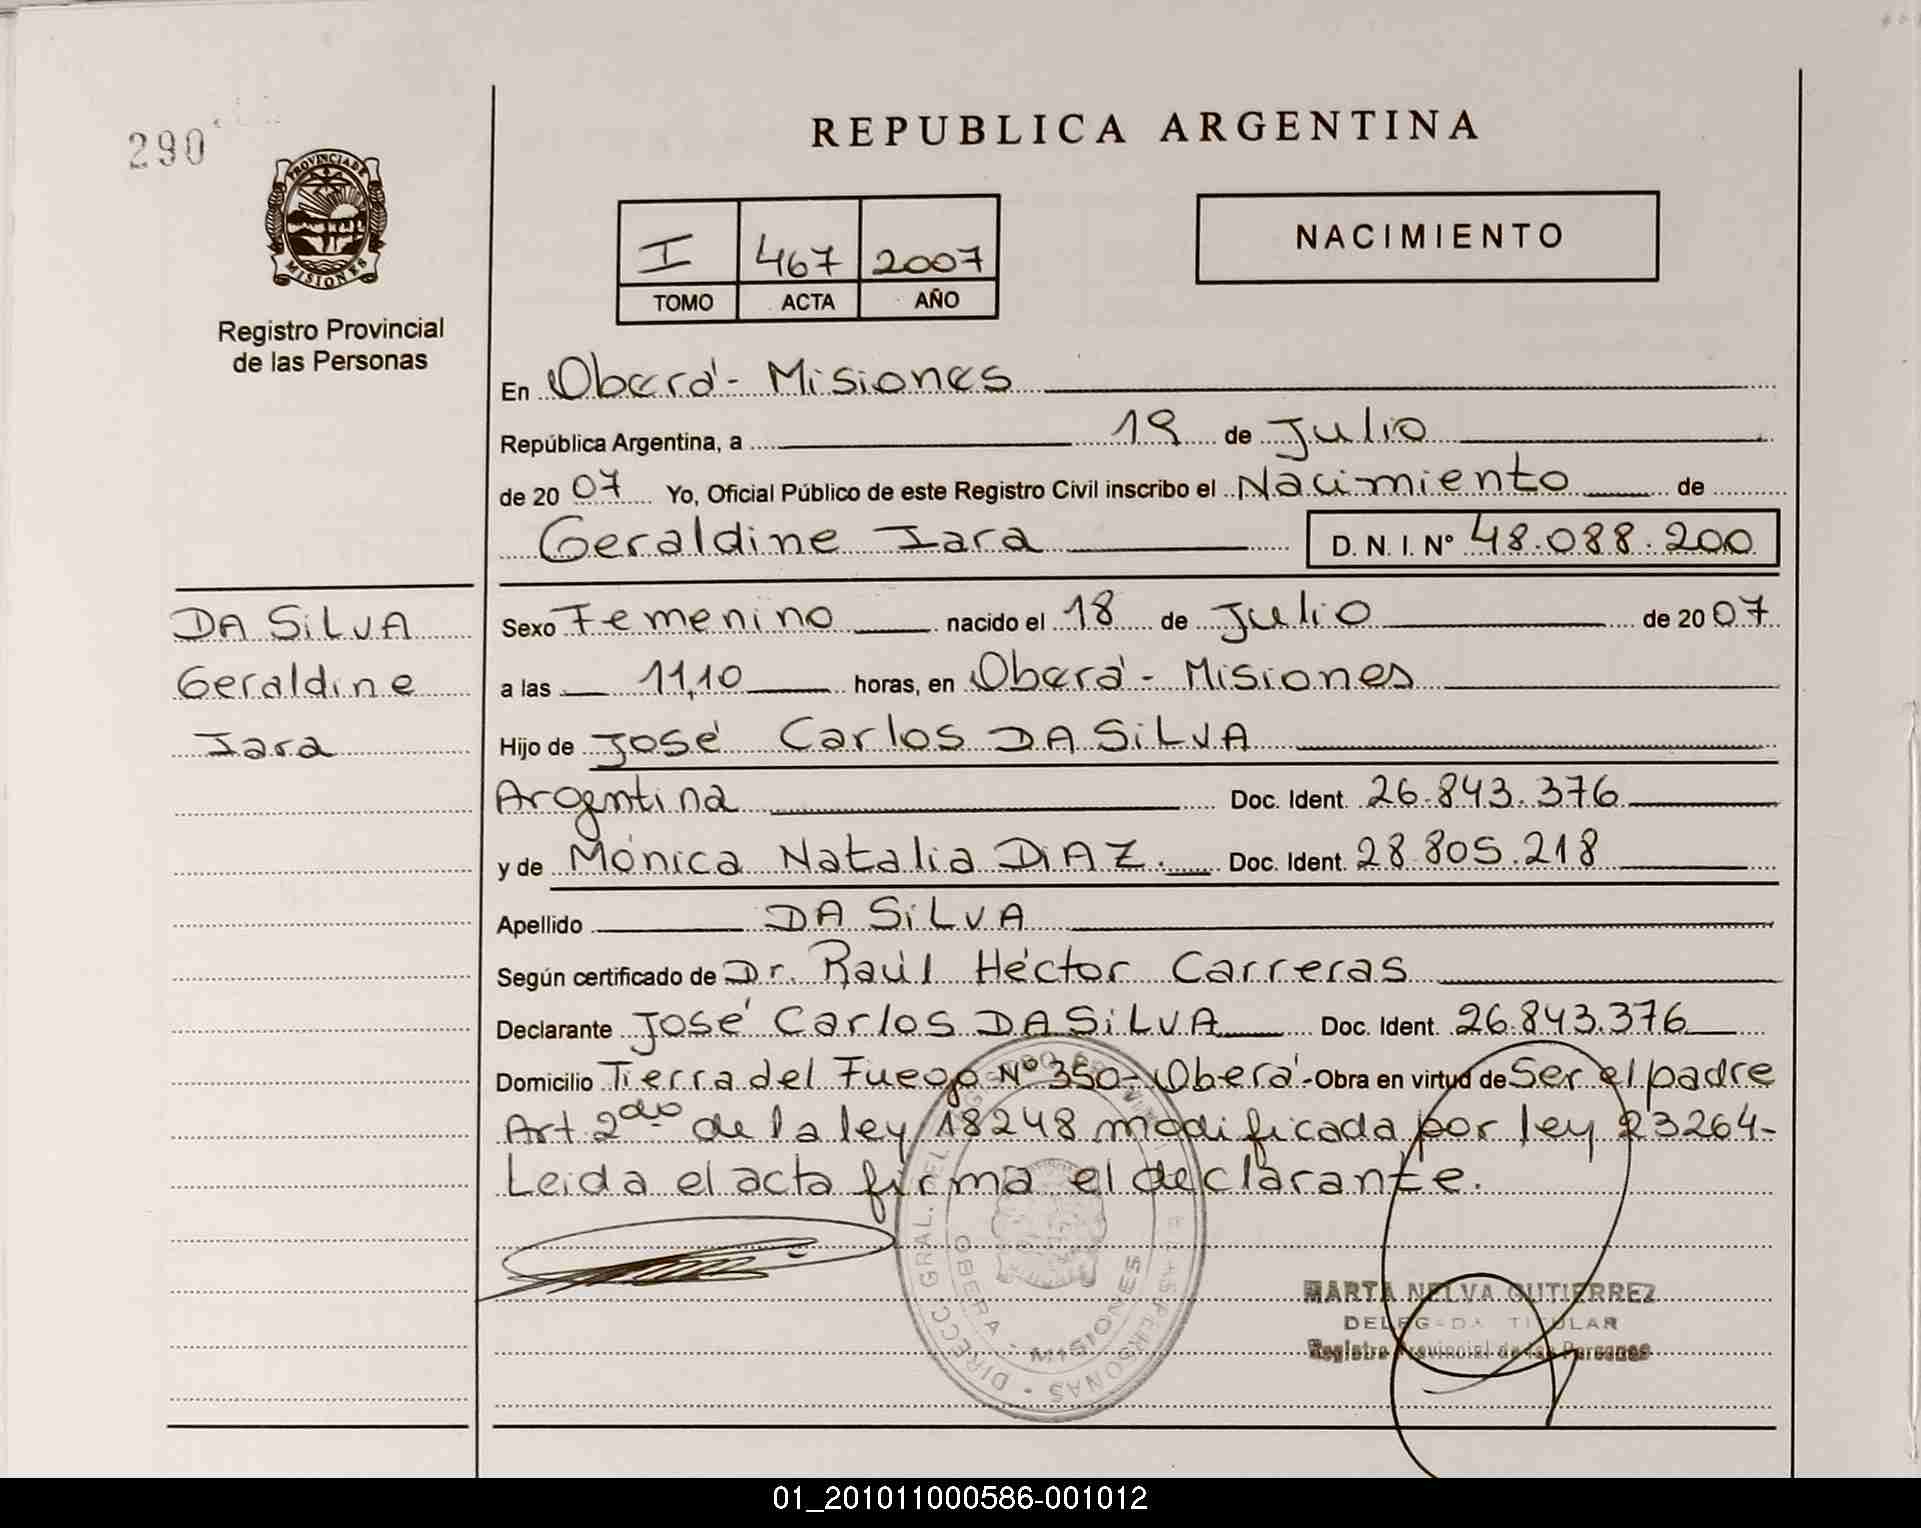 290
PROVINCIA DE
MISIONES
Registro Provincial
de las Personas
REPUBLICA ARGENTINA
I 467 2007
TOMO ACTA AÑO
NACIMIENTO
En Oberá - Misiones
República Argentina, a 19 de Julio
de 20 07 Yo, Oficial Público de este Registro Civil inscribo el Nacimiento de
Geraldine Iara D. N. I. Nº 48.088.200
DA SiLVA
Geraldine
Iara
Sexo Femenino nacido el 18 de Julio de 20 07
a las 11,10 horas, en Oberá - Misiones
Hijo de José Carlos DA SiLVA
Argentina Doc. Ident. 26.843.376
y de Mónica Natalia DiAZ. Doc. Ident. 28.805.218
Apellido DA SiLVA
Según certificado de Dr. Raúl Héctor Carreras
Declarante José Carlos DA SiLVA Doc. Ident. 26.843.376
Domicilio Tierra del Fuego Nº 350 - Oberá - Obra en virtud de Ser el padre
Art 2do de la ley 18248 modificada por ley 23264-
Leida el acta firma el declarante.
DIRECC. GRAL. DEL REGISTRO PROVINCIAL DE LAS PERSONAS
OBERA - MISIONES
MARTA NELVA GUTIERREZ
DELEGADA TITULAR
Registro Provincial de las Personas
01_201011000586-001012